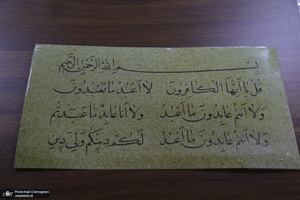 بسم الله الرحمن الرحيم
قل يا أيها الكافرون لا أعبد ما تعبدون
ولا أنتم عابدون ما أعبد ولا أنا عابد ما عبدتم
ولا أنتم عابدون ما أعبد لكم دينكم ولي دين